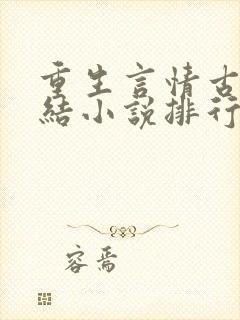 重生言情古
結小說排行
容焉